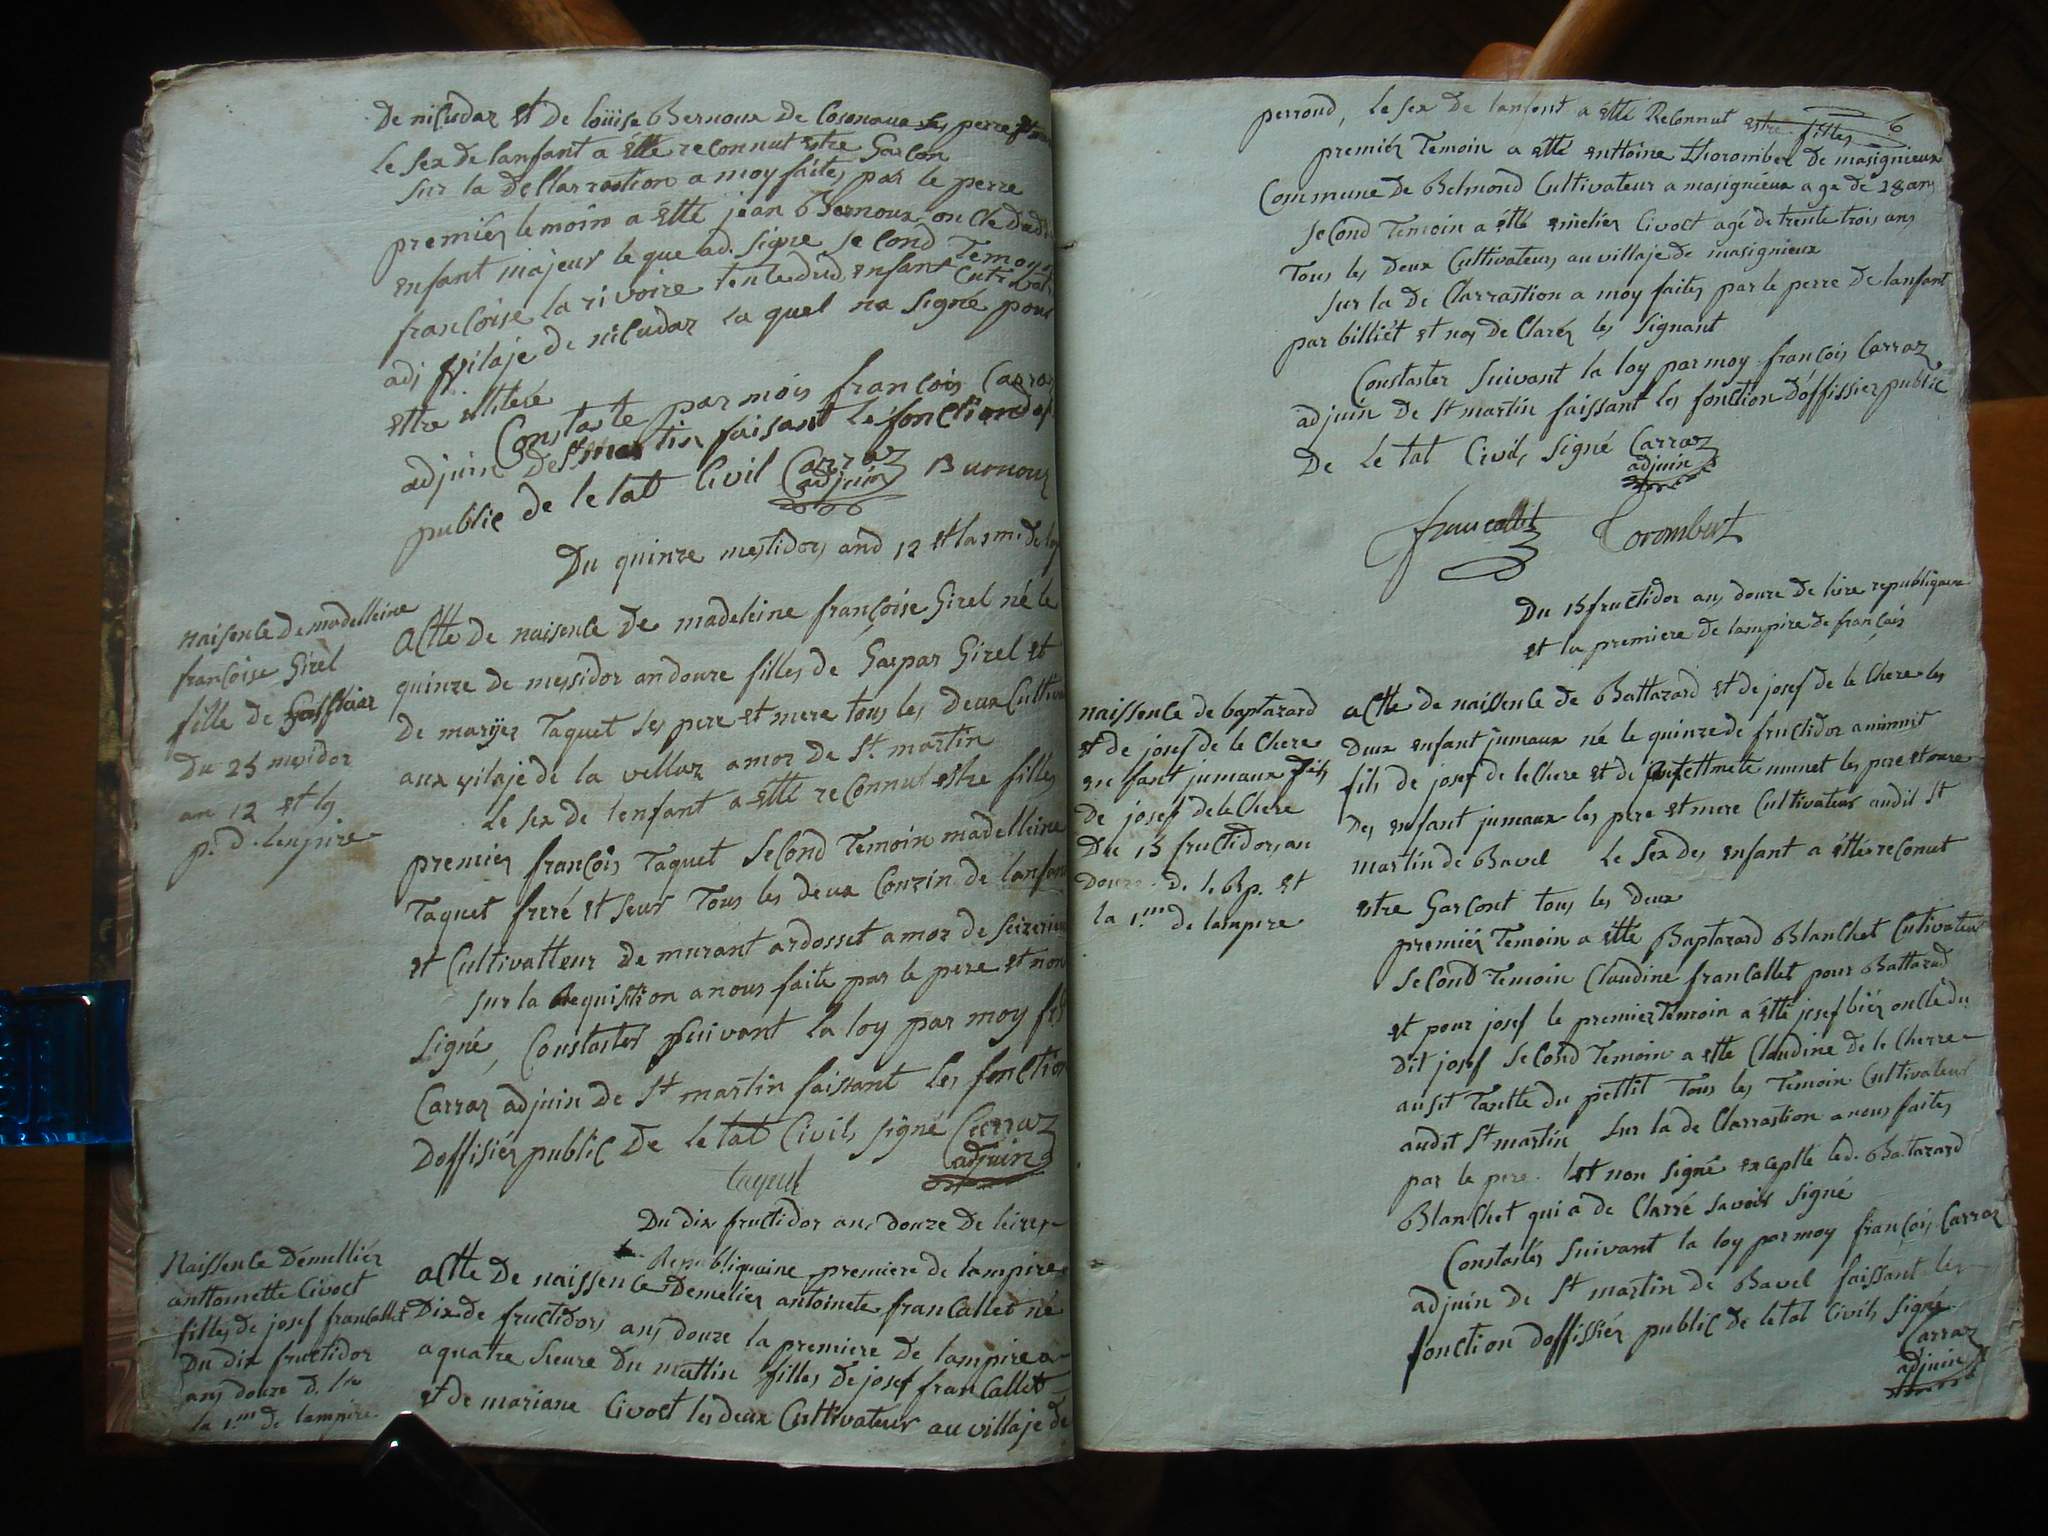 De niCudaz et De loüise Bernoux De Cosonaux ses perre et mere
Le sex de lanfant a étté reconnut estre Garcon
sur la deCllarration a moy faites par le perre
premiér temoin a étté jean Bernoux on Cle dudi
enfant majeur le que ad. signe se Cond Temoy
françoise la rivoire tente dud enfant Cult
adi vilaje de niCudaz la quel na signé pour
estre illiteré
Constaté par mois françois Carraz
adjuin de St martin faisant les fonction dof
public de le tat Civil Carraz adjuin Burnoux
Du quinze mesidors and 12 et la 1.m de l
naisence de madelleine
françoise Girel
fille de Gasspar
Du 25 mesidor
an 12 et la
p. d. Lenpire
Actte de naisence de madeleine françoise Girel né le
quinze de messidor an douze filles de Gaspar Girel et
de maryez Taquet ses pere et mere tous les deux Cultiva
aux vilaje de la velluz amoz de St. martin
Le sex de lenfant a étté reConnut estre filles
premiér françois Taquet seCond Temoin madelleine
Taquet freré et seur Tous les deux Couzin de lanfant
et Cultivatteur de murant ardosset amoz de Seizerieu
sur la Requisition a nous faite par le pere et non
signé, Constatés suivant la loy par moy frs
Carraz adjuin de St martin faissant les fonction
doffisiér public de le tat Civils signé Carraz
taquet adjuin
Du dix fructidor ans douze de leire
Republiquaine premiere de lampire
Naissence démelliér
anttoinette Civoct
filles de josef franCallet
Du dix fructidor
ans douze d. la
la 1.m de lampire
aCtte De naissence Demeliér antoinete franCallet né
Dix de fructidors ans douze la premiere de lampire a
a quatre heure Du mattin filles De josef franCallet
et de mariane Civoct les deux Cultivateur au villaje de
6
perroud, Le sex de lanfent a étté ReConnut estre filles
premiér Temoin a étté enttoine thorombert de masignieux
Commune de Belmond Cultivateur a masignieux age de 28 ans
seCond Temoin a étté emeliér Civoct agé de trente trois ans
Tous les deux Cultivateurs au villaje de masignieux
sur la de Clarrastion a moy faites par le perre de lanfant
par billiét et noy de Claréz les signant
Constater suivant la loy par moy françois Carraz
adjuin de St martin faissant les fonction doffissier public
De Le tat Civils signé Carraz
adjuin
francallet Torombert
Du 15 fructidor ans douze de leire republiquaine
et la premiere de lampire de françois
naissence de baptazard
et de josef de le Chere
enfant jumaux fils
De josef de le Chere
Du 15 fructidors an
Douze de le Rp. et
la 1.m de lampire
aCtte de naissence de Battazard et de josef de le Chere les
Deux enfant jumaux né le quinze de fructidor a minuit
fils de josef de le Chere et de josefttmete munet les pere et mere
Des enfant jumaux les pere et mere Cultivateur audit St
martin de Bavel Le sex des enfant a étté reconut
estre Garcont tous les deux
premiér Temoin a étté Baptazard BlanChet Cultivateur
seCond Temoin Claudine franCallet pour Battazard
et pour josef le premier Temoin a étté josef biér on Cle du
dit josef seCond Temoin a étté Claudine de le Cherre
ausit Tantte du pettit Tous les Temoin Cultivateur
audit St martin sur la de Clarrastion a nous faites
par le pere et non signé exceptte led. Batazard
BlanChet qui a de Clarré savoir signé
Constatés suivant la loy par moy françois Carraz
adjuin de St martin de Bavel faissant les
fonction doffissiér public de le tat Civils signé
Carraz
adjuin